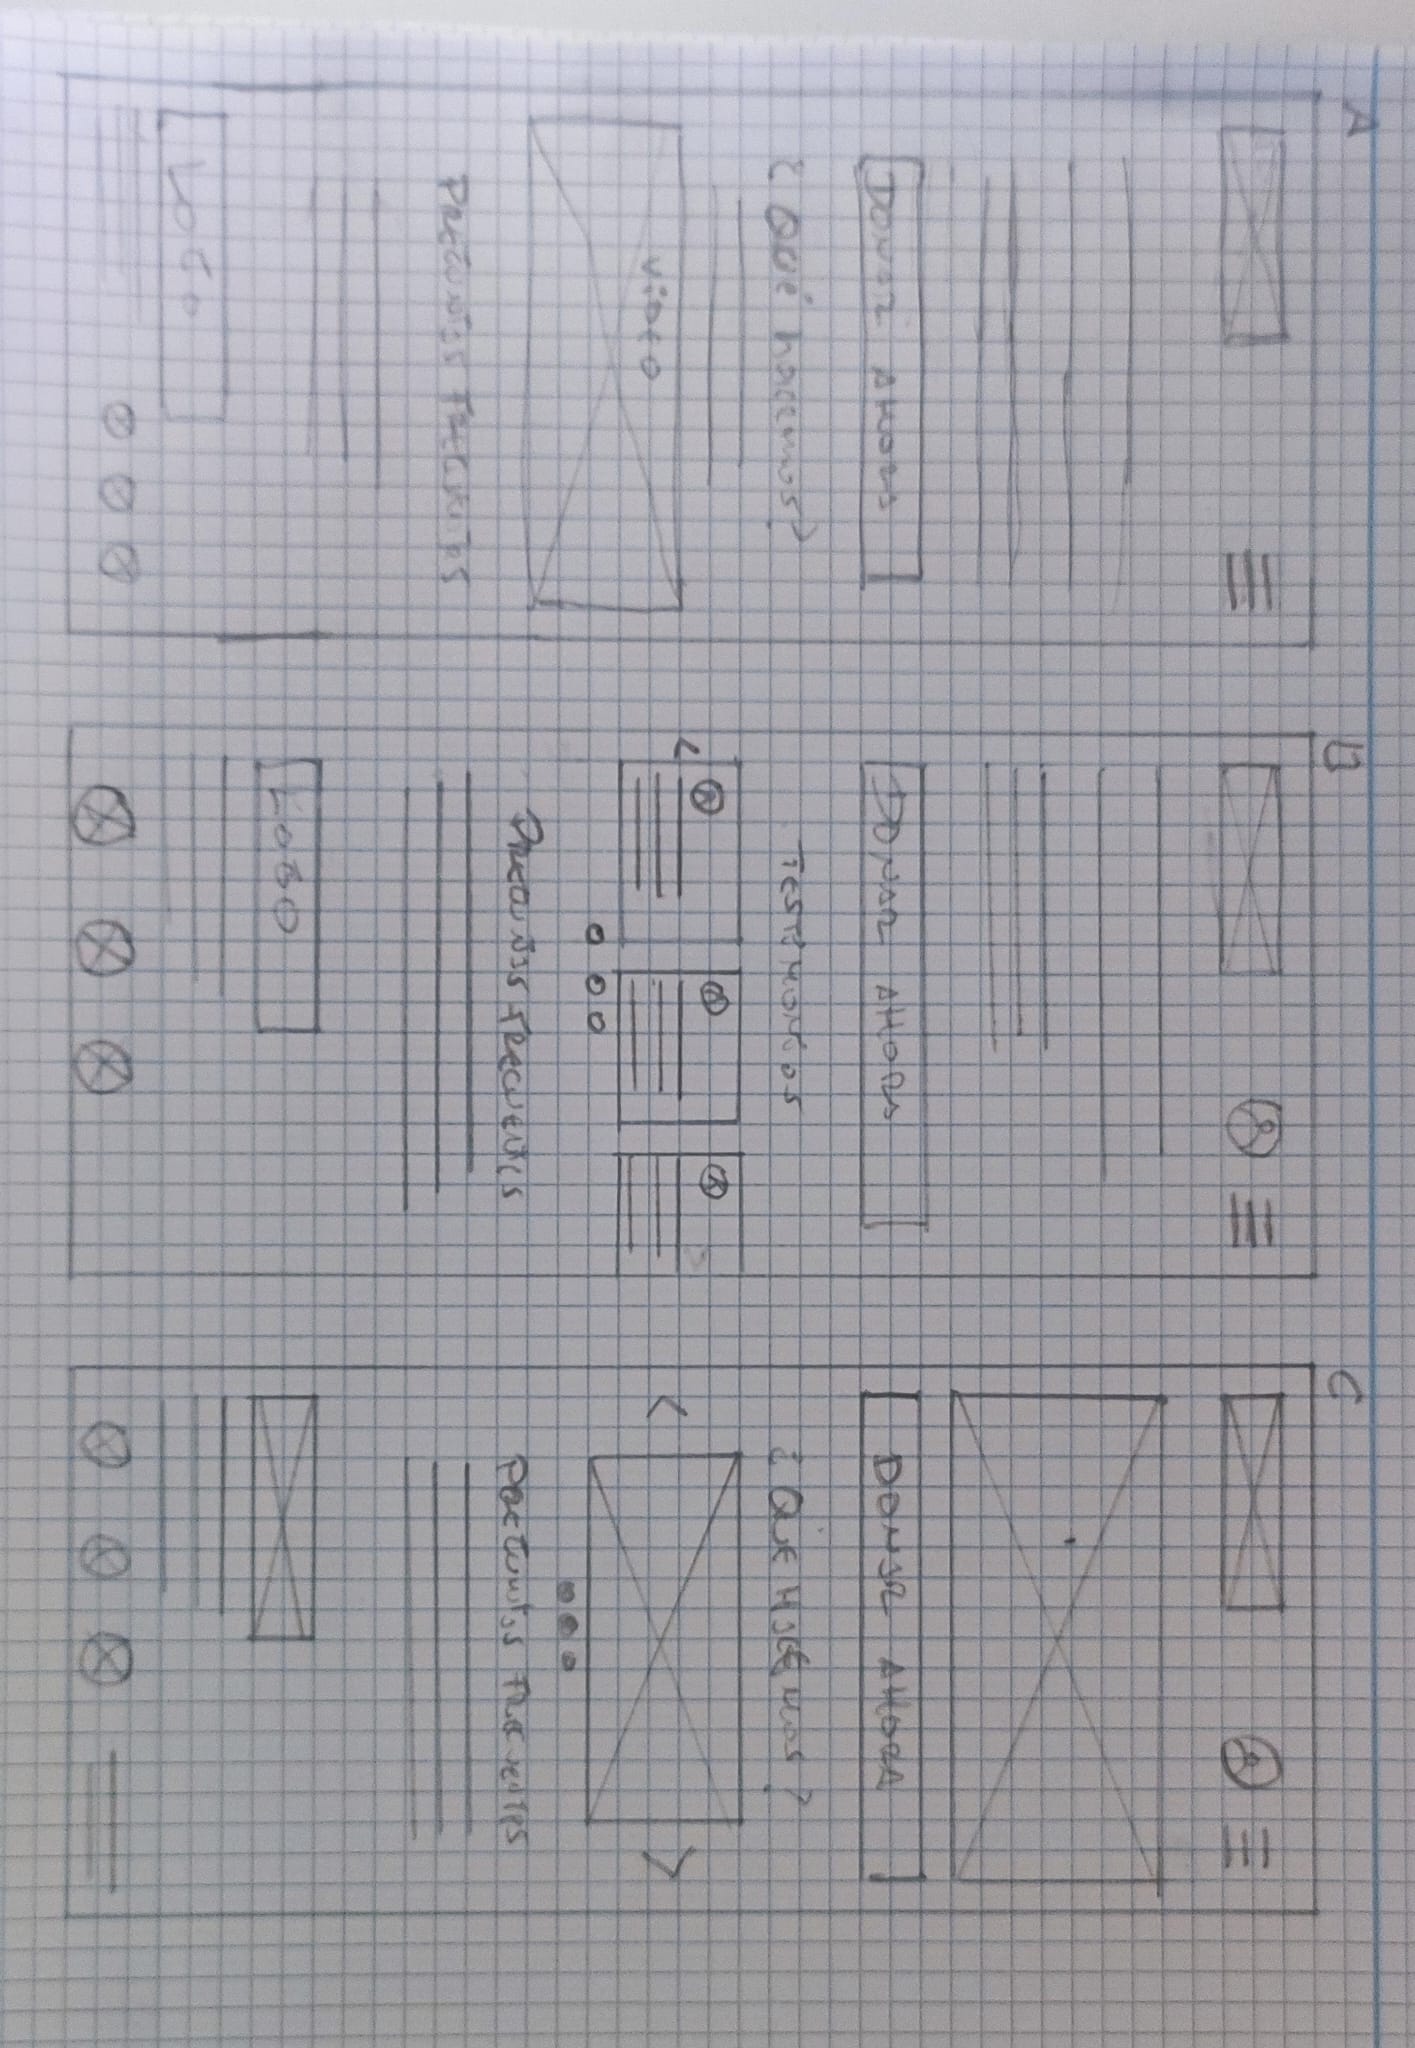 A
DONAR AHORA
¿Qué hacemos?
VIDEO
PREGUNTAS FRECUENTES
LOGO
B
DONAR AHORA
TESTIMONIOS
<
PREGUNTAS FRECUENTES
LOGO
C
DONAR AHORA
¿QUE HACEMOS?
< >
PREGUNTAS FRECUENTES